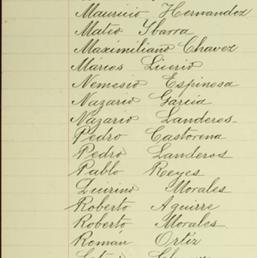 Mauricio Hernandez
Mateo Ybarra
Maximiliano Chavez
Marcos Licerio
Nemesio Espinosa
Nazario Garcia
Nazario Landeros
Pedro Castorena
Pedro Landeros
Pablo Reyes
Quirino Morales
Roberto Aguirre
Roberto Morales
Román Ortiz